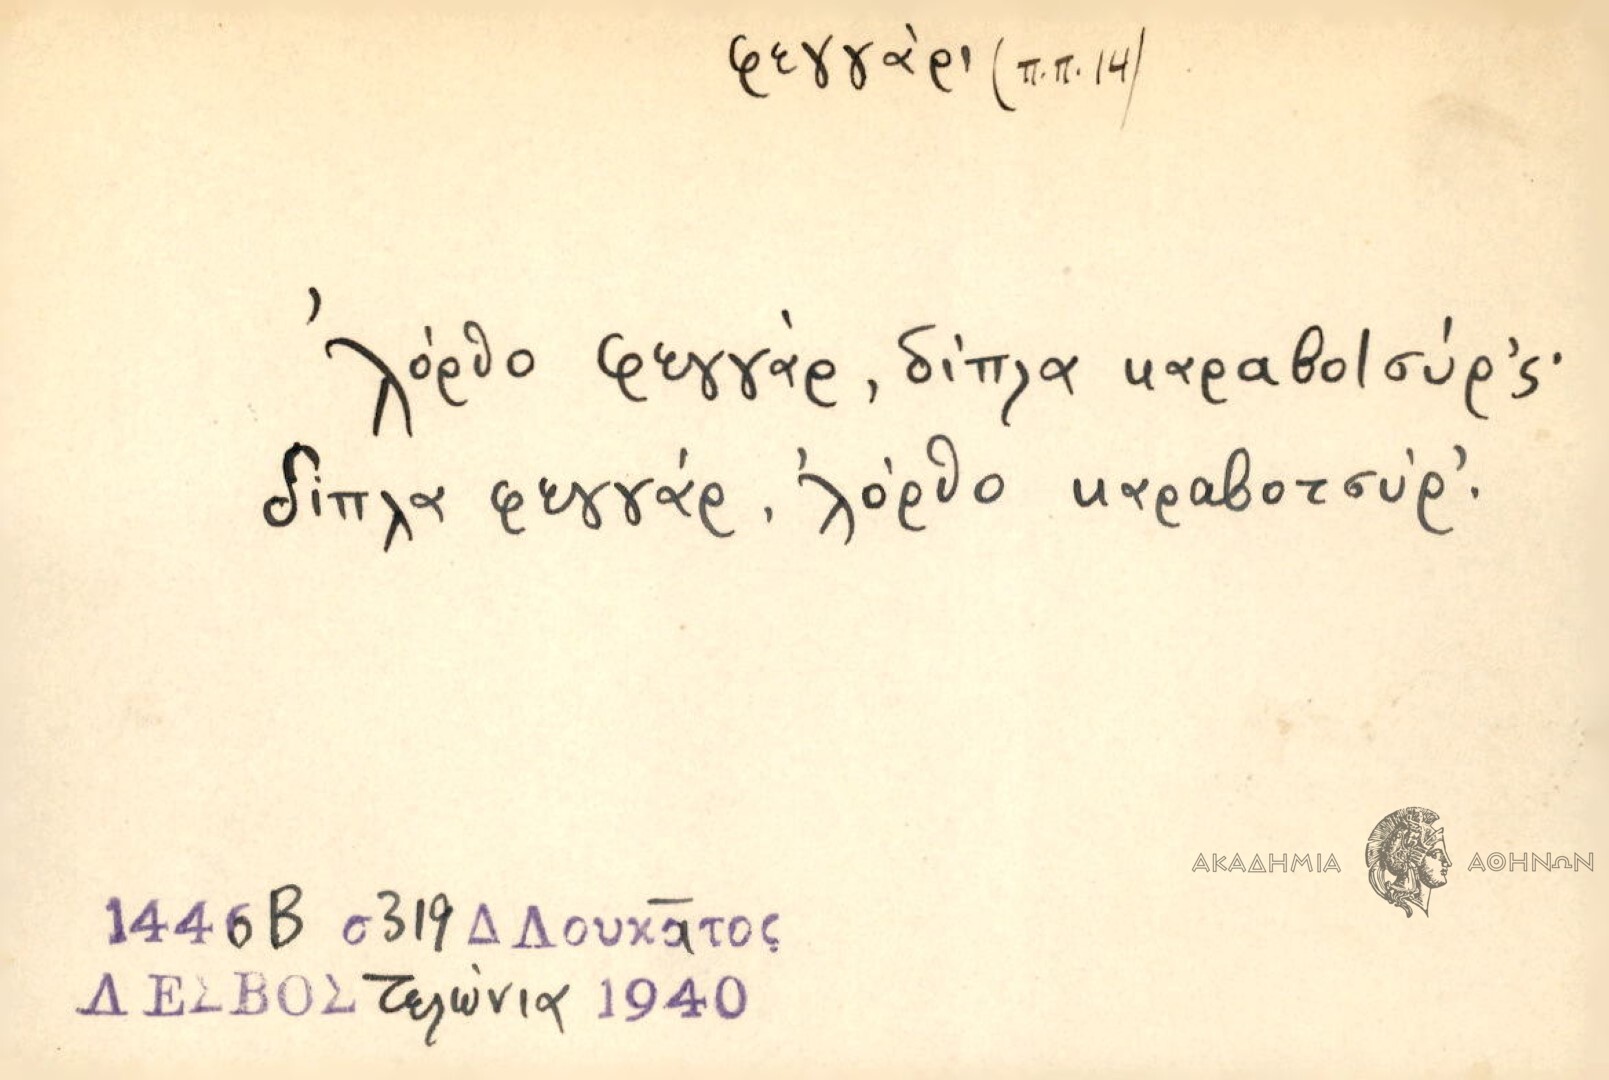 φεγγάρι (π.π. 14)
'λόρθο φεγγάρ, δίπλα καραβοτσύρ'ς·
δίπλα φεγγάρ, 'λόρθο καραβοτσύρ'.
ΑΚΑΔΗΜΙΑ ΑΘΗΝΩΝ
1446Β σ319 Δ Λουκᾱτος
ΛΕΣΒΟΣ Τελώνια 1940